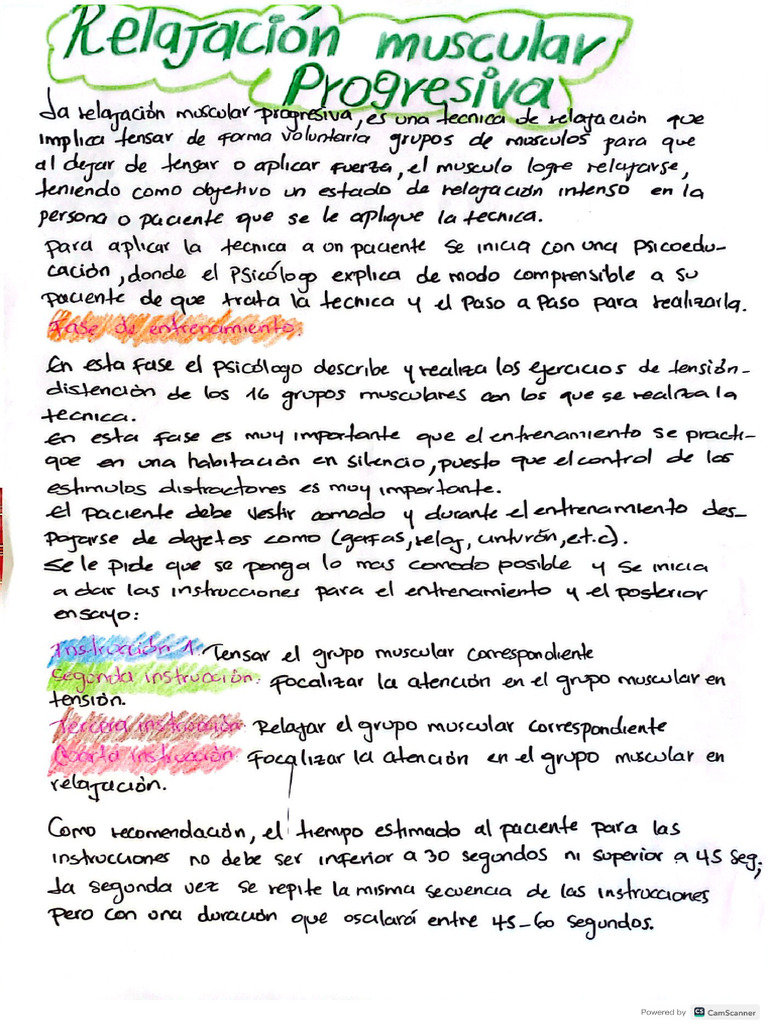 Relajación muscular
Progresiva
La relajación muscular progresiva, es una tecnica de relajación que
implica tensar de forma voluntaria grupos de musculos para que
al dejar de tensar o aplicar fuerza, el musculo logre relajarse,
teniendo como objetivo un estado de relajación intenso en la
persona o paciente que se le aplique la tecnica.
para aplicar la tecnica a un paciente se inicia con una Psicoedu-
cación, donde el Psicólogo explica de modo comprensible a su
paciente de que trata la tecnica y el Paso a Paso para realizarla.
Fase de entrenamiento:
En esta fase el psicólogo describe y realiza los ejercicios de tensión-
distención de los 16 grupos musculares con los que se realiza la
tecnica.
en esta fase es muy importante que el entrenamiento se practi-
que en una habitación en silencio, puesto que el control de los
estimulos distractores es muy importante.
el paciente debe vestir comodo y durante el entrenamiento des-
pojarse de objetos como (gafas, reloj, cinturón, et.c).
se le pide que se ponga lo mas comodo posible y se inicia
a dar las instrucciones para el entrenamiento y el posterior
ensayo:
Instrucción 1: Tensar el grupo muscular correspondiente
Segonda instrucción: Focalizar la atención en el grupo muscular en
tensión.
Tercera instrucción: Relajar el grupo muscular correspondiente
Cuarta instrucción: Focalizar la atención en el grupo muscular en
relajación.
Como recomendación, el tiempo estimado al paciente para las
instrucciones no debe ser inferior a 30 segundos ni superior a 45 seg;
la segunda vez se repite la misma secuencia de las instrucciones
pero con una duración que oscilará entre 45-60 segundos.
Powered by CS CamScanner